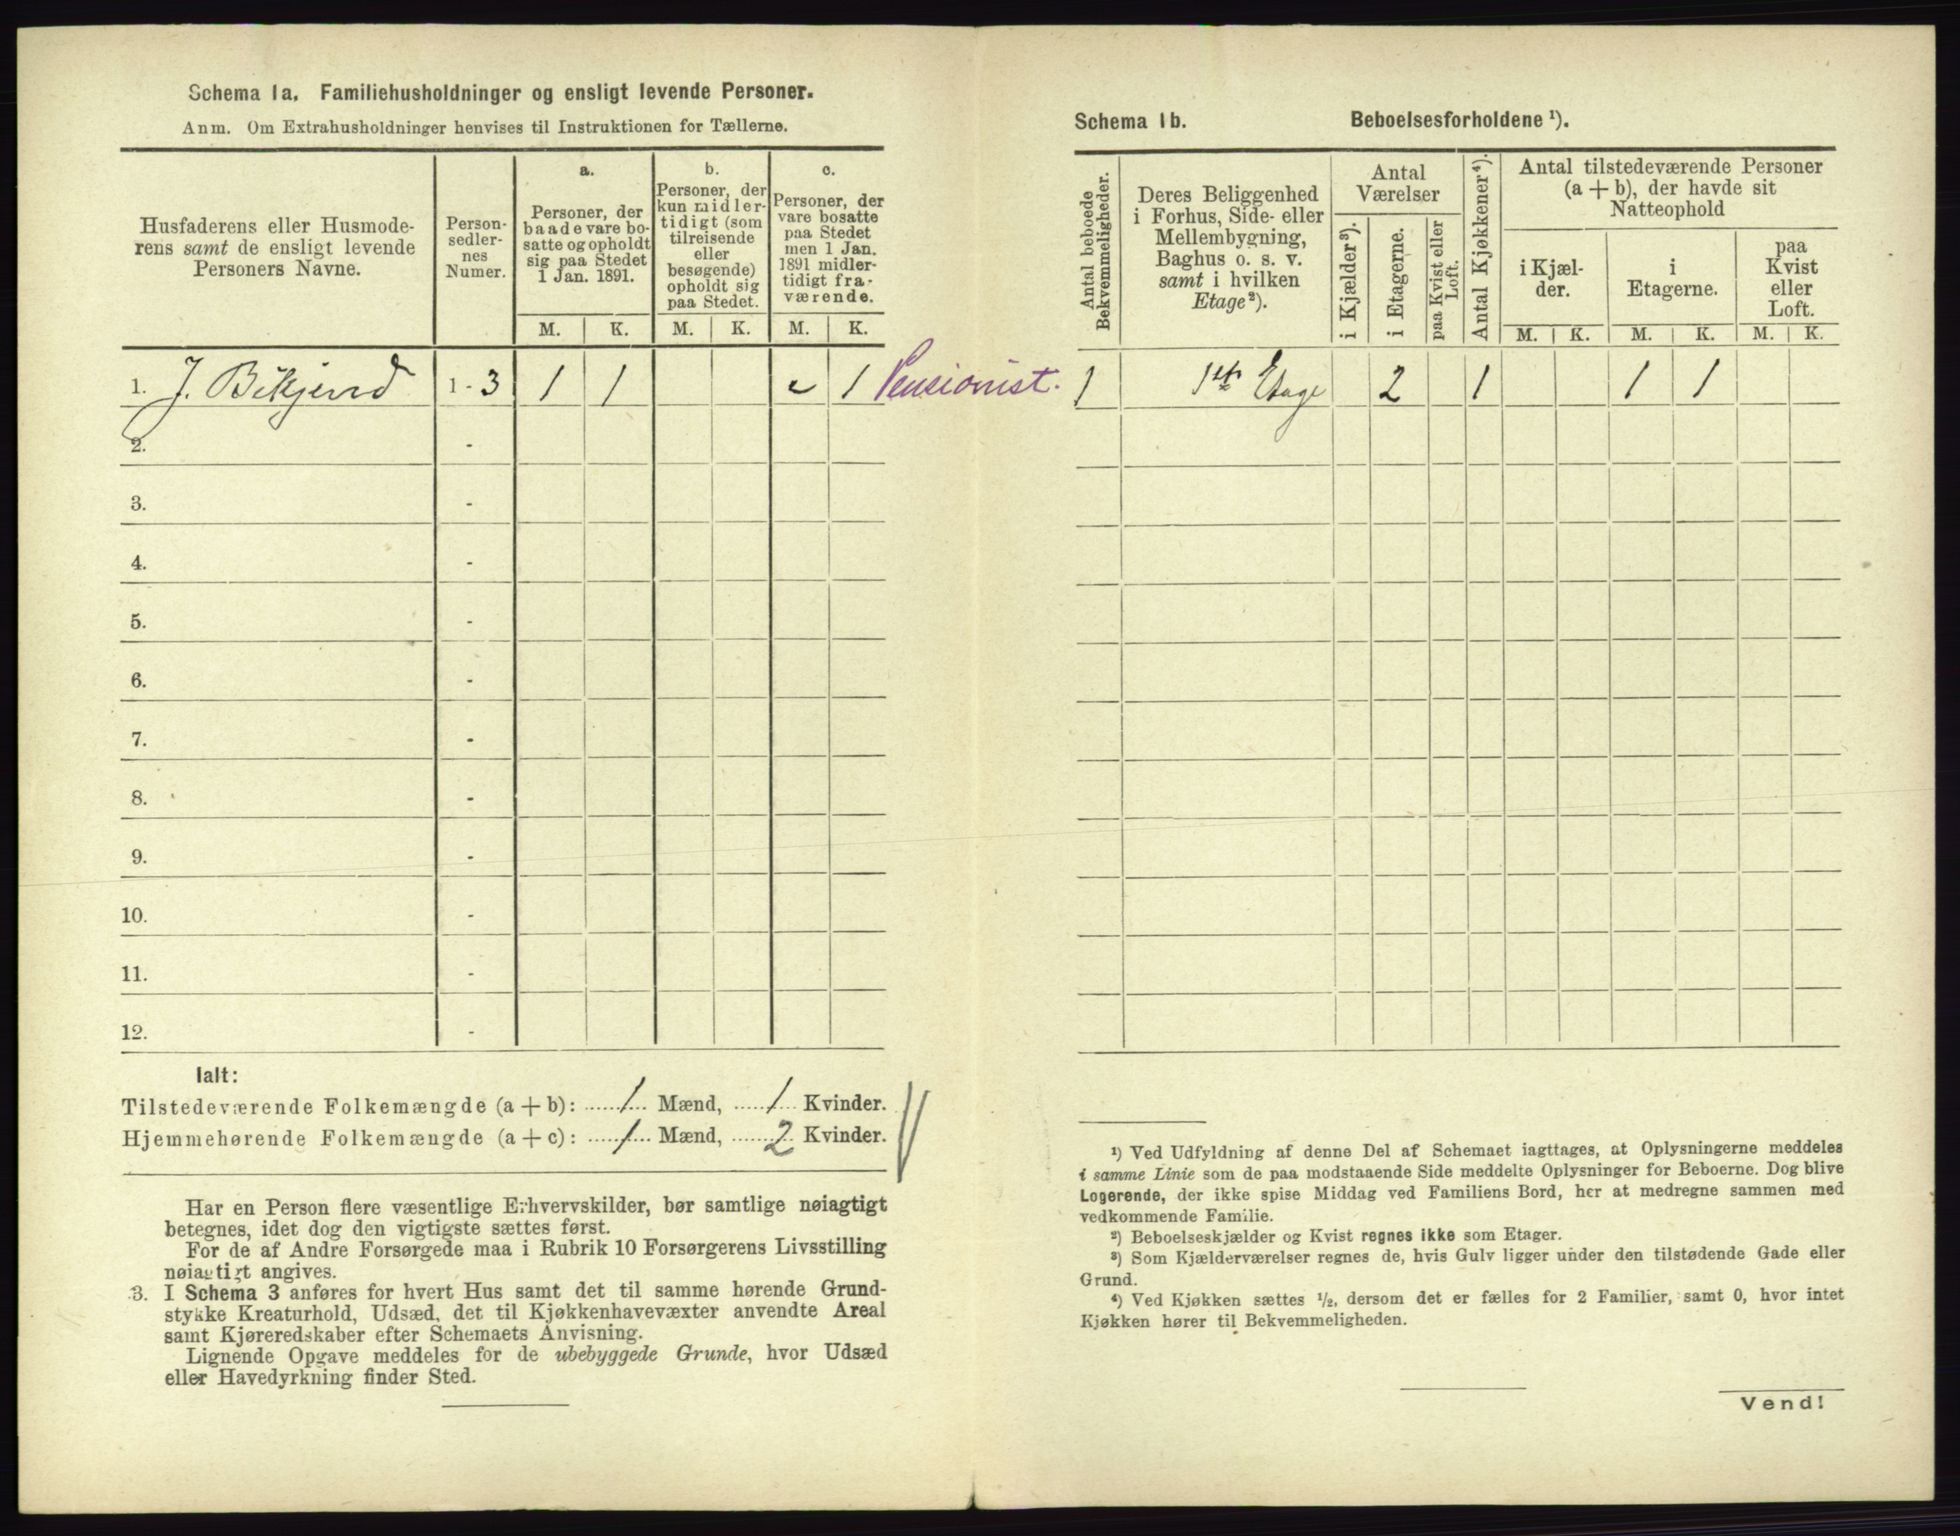 Schema 1a. Familiehusholdninger og ensligt levende Personer.
Anm. Om Extrahusholdninger henvises til Instruktionen for Tællerne.
Husfaderens eller Husmode-
rens samt de ensligt levende
Personers Navne.
Person-
sedler-
nes
Numer.
a.
Personer, der
baade vare bo-
satte og opholdt
sig paa Stedet
1 Jan. 1891.
b.
Personer, der
kun midler-
tidigt (som
tilreisende
eller
besøgende)
opholdt sig
paa Stedet.
c.
Personer, der
vare bosatte
paa Stedet
men 1 Jan.
1891 midler-
tidigt fra-
værende.
M. K. M. K. M. K.
1. J. Bikjend 1 - 3 1 1 1 Pensionist.
2. -
3. -
4. -
5. -
6. -
7. -
8. -
9. -
10. -
11. -
12. -
Ialt:
Tilstedeværende Folkemængde (a + b): 1 Mænd, 1 Kvinder.
Hjemmehørende Folkemængde (a + c): 1 Mænd, 2 Kvinder.
Har en Person flere væsentlige Erhvervskilder, bør samtlige nøiagtigt
betegnes, idet dog den vigtigste sættes først.
For de af Andre Forsørgede maa i Rubrik 10 Forsørgerens Livsstilling
nøiagtigt angives.
3. I Schema 3 anføres for hvert Hus samt det til samme hørende Grund-
stykke Kreaturhold, Udsæd, det til Kjøkkenhavevæxter anvendte Areal
samt Kjøreredskaber efter Schemaets Anvisning.
Lignende Opgave meddeles for de ubebyggede Grunde, hvor Udsæd
eller Havedyrkning finder Sted.
Schema 1b. Beboelsesforholdene ¹).
Antal beboede
Bekvemmeligheder.
Deres Beliggenhed
i Forhus, Side- eller
Mellembygning,
Baghus o. s. v.
samt i hvilken
Etage²).
Antal
Værelser
i Kjælder³).
i Etagerne.
paa Kvist eller
Loft.
Antal Kjøkkener⁴).
Antal tilstedeværende Personer
(a + b), der havde sit
Natteophold
i Kjæl-
der.
i
Etagerne.
paa
Kvist
eller
Loft.
M. K. M. K. M. K.
1 1ste Etage 2 1 1 1
¹) Ved Udfyldning af denne Del af Schemaet iagttages, at Oplysningerne meddeles
i samme Linie som de paa modstaaende Side meddelte Oplysninger for Beboerne. Dog blive
Logerende, der ikke spise Middag ved Familiens Bord, her at medregne sammen med
vedkommende Familie.
²) Beboelseskjælder og Kvist regnes ikke som Etager.
³) Som Kjælderværelser regnes de, hvis Gulv ligger under den tilstødende Gade eller
Grund.
⁴) Ved Kjøkken sættes ½, dersom det er fælles for 2 Familier, samt 0, hvor intet
Kjøkken hører til Bekvemmeligheden.
Vend!